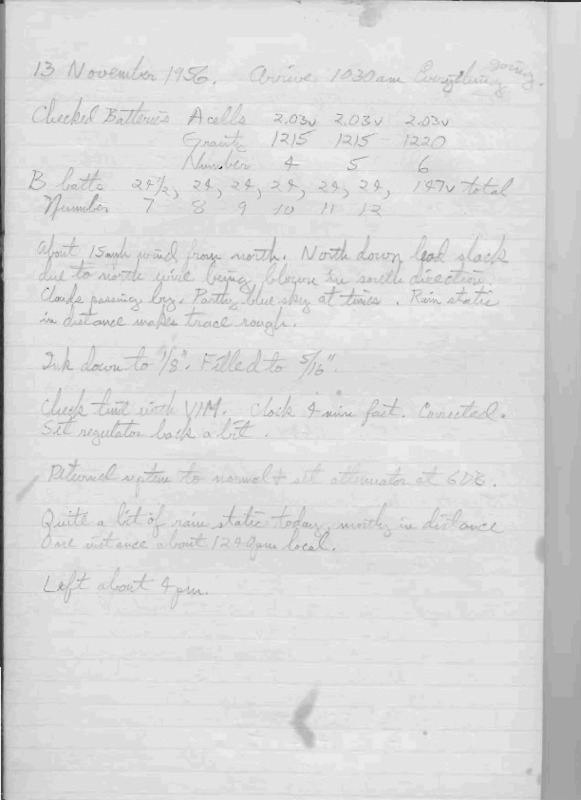 13 November 1956. Arrive 1030am Everything going.
Checked Batteries A cells 2.03v 2.03v 2.03v
Gravity 1215 1215 1220
Number 4 5 6
B batts 24½, 24, 24, 24, 24, 24, 147v total
Number 7 8 9 10 11 12
About 15mph wind from north. North down lead slack
due to north wire being blown in south direction.
Clouds passing by. Partly blue sky at times. Rain static
in distance makes trace rough.
Ink down to 1/8". Filled to 5/16".
Check time with VIM. Clock 4 min fast. Corrected.
Set regulator back a bit.
Returned system to normal & set attenuator at 6DB.
Quite a bit of rain static today, mostly in distance
One instance about 1240pm local.
Left about 4pm.